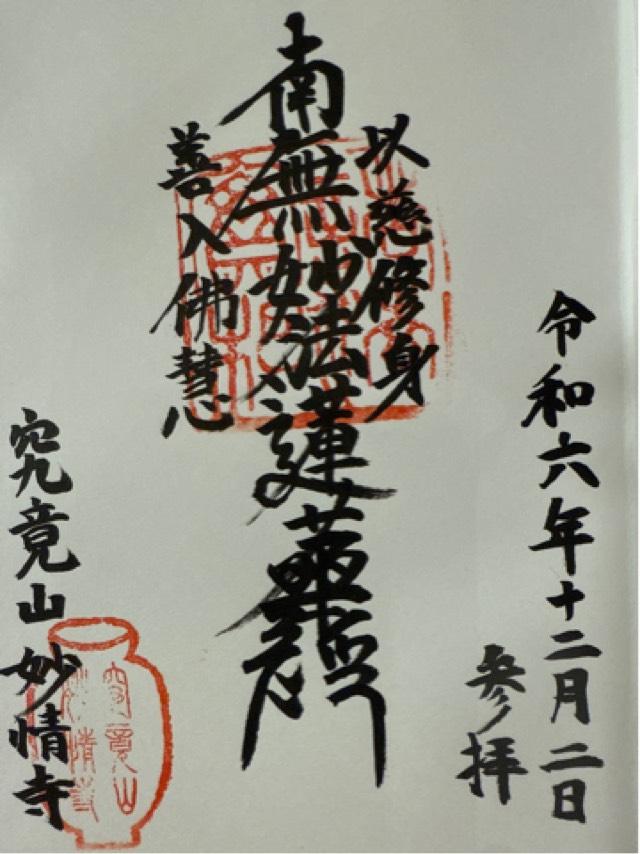 令和六年十二月二日
参拝
以慈修身
南無妙法蓮華経
善入佛慧
究竟山妙情寺
究竟山
妙情寺